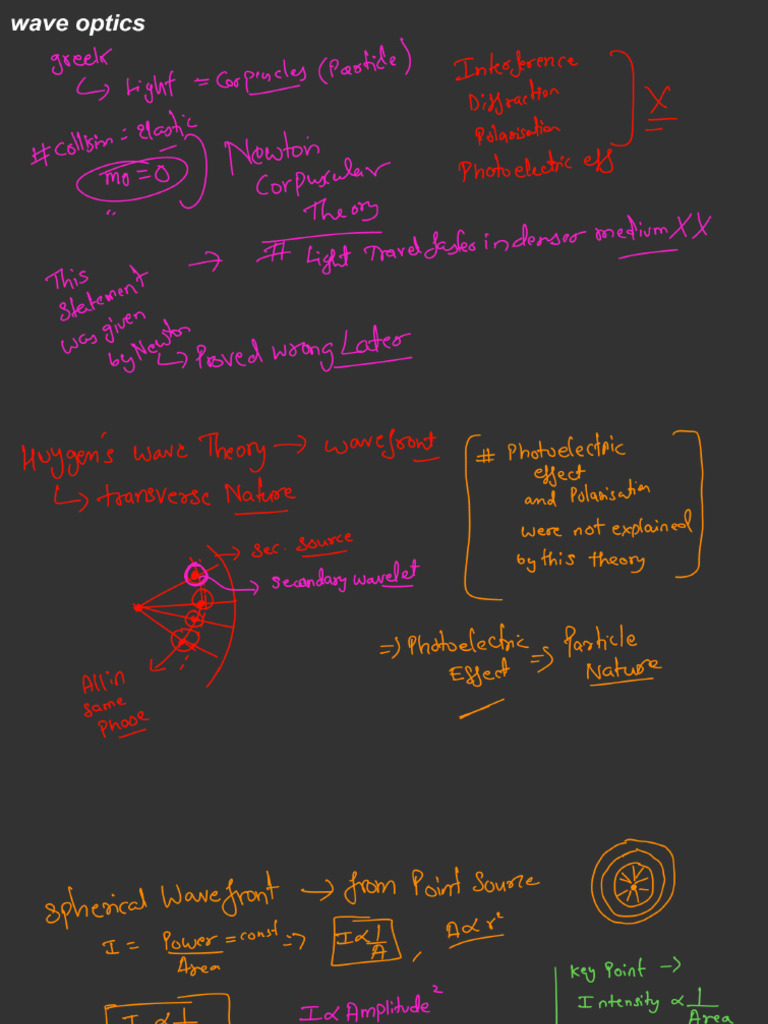 wave optics
greek
↳ Light = Corpuscles (Particle)
# Collisn = Elastic
m₀ = 0
"
Newton
Corpuscular
Theory
Interference
Diffraction
Polarisation
Photoelectric eff
X
# Light Travel faster in denser medium XX
This
statement →
was given
by Newton
↳ Proved wrong Later
Huygen's wave Theory → wavefront
↳ transverse Nature
# Photoelectric
effect
and Polarisation
were not explained
by this theory
→ sec. source
→ secondary wavelet
All in
same
phase
⇒ Photoelectric ⇒ Particle
Effect Nature
Spherical Wavefront → from Point Source
I = Power/Area = const ⇒ I ∝ 1/A , A ∝ r²
I ∝ 1
I ∝ Amplitude²
Key Point →
Intensity ∝ 1/Area